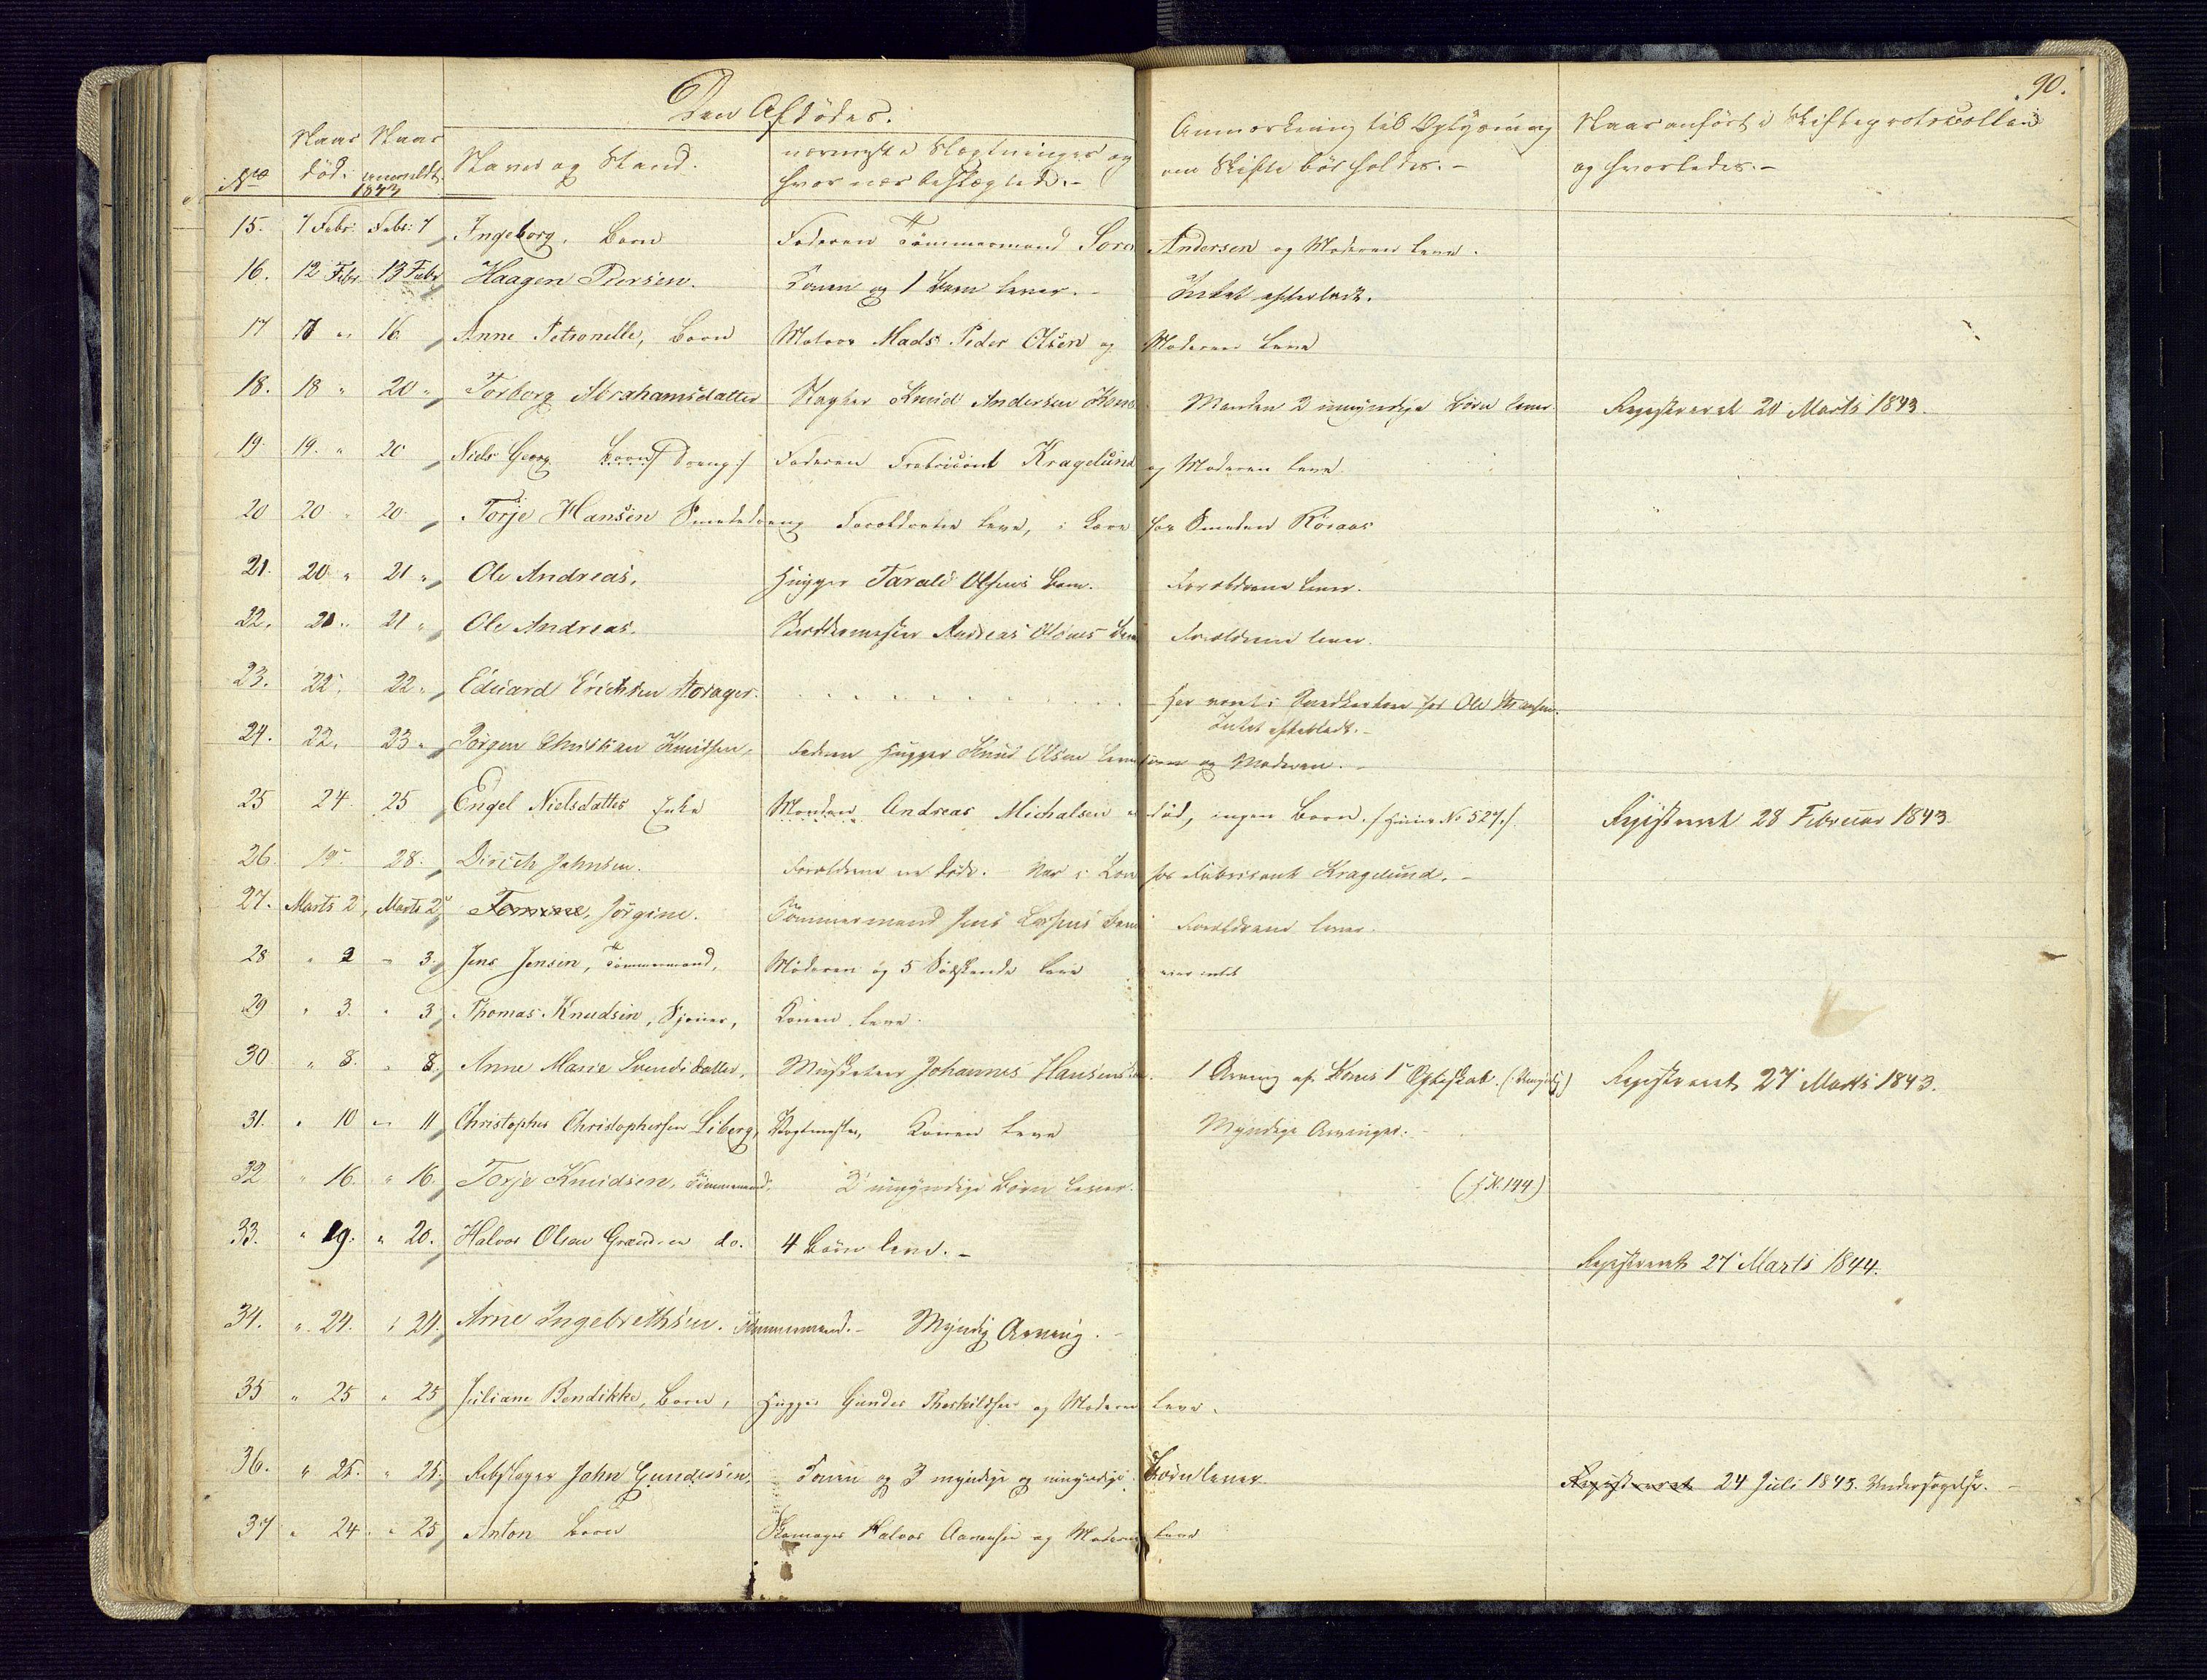 90.
Den Afdødes.
No Naar død. Naar anmeldt. 1843 Navn og Stand. nærmeste Slægtninger og Anmærkning til Oplysning Naar anført i Skifteprotocollen
hvor nær beslægtede.- om Skifte bør holdes.- og hvorledes.-
15. 7 Febr: Febr: 7 Ingeborg, Barn Faderen Tømmermand Andersen og Moderen leve.
16. 12 Febr 13 Febr Haagen Persen. Konen og 1 Barn lever.- Intet efterladt.
17 17 " 16 Anne Petronelle, Barn Matros Mads Peder Olsen og Moderen leve
18. 18 " 20 " Torborg Abrahamsdatter Knud Andersen Kone Manden 2 umyndige Børn lever. Registreret 20 Marts 1843.
19 19. " 20 Niels Georg Barn /: Dreng :/ Faderen Frabricant Kragelund og Moderen leve.
20 20 " 20 Torje Hansen Smededreng Forældrene leve, i Lære hos Smeden Röraas
21. 20 " 21 " Ole Andreas, Hugger Tarald Olsens Barn. Forældrene lever.
22. 21 " 21 " Ole Andreas. Andreas Olsens Barn Forældrene lever.
23. 22. 22 " Eduard Erichsen Horager. Har været i Snedkerlære hos Ole Hansen.
Intet efterladt.-
24. 22. 23 " Jørgen Christian Knudsen, Faderen Hugger Knud Olsen og Moderen.-
25 24 25 Engel Nielsdatter Enke Manden Andreas Michalsen er død, ingen Børn. /: Huus No 527 :/ Registreret 28 Februar 1843
26. 19 28. Dirich Johnsen. Forældrene er døde. Var i Lære hos Fabricant Kragelund.-
27. Marts 2, Marts 2 Tomine, Jørgine. Tømmermand Jens Larsens Barn Forældrene lever.
28 " 2 " 3. Jens Jensen, Tømmermand, Moderen og 5 Sødskende leve eier intet
29 " 3. " 3 Thomas Knudsen, Konen leve.
30 " 8. " 8. Anne Marie Svendsdatter, Musketeer Johannes Hansens 1 Arving af Kones 1ste Ægteskab. (Umyndig) Registreret 27 Marts 1843.
31. " 10 " 11 Christopher Christophersen Liberg, Konen leve Myndige Arvinger.
32 " 16. " 16. Torje Knudsen, Tømmermand. 2 umyndige Børn lever. (H.N. 144)
33. " 19. " 20. Halvor Olsen do. 4 Børn leve.- Registreret 27 Marts 1844.
34. " 24. " 24. Arne Ingebrethsen. Tømmermand.- Myndig Arving.-
35 " 25 " 25 Juliane Bendikke, Barn, Hugger Gunder Therkildsen og Moderen leve.
36. " 25. " 25. Rebslager John Gundersen, Konen og 3 myndige og umyndige Børn lever Registreret 24 Juli 1843. Undersøgelse.-
37 " 24 " 25 Anton Barn Skomager Halvor Aanensen og Moderen leve